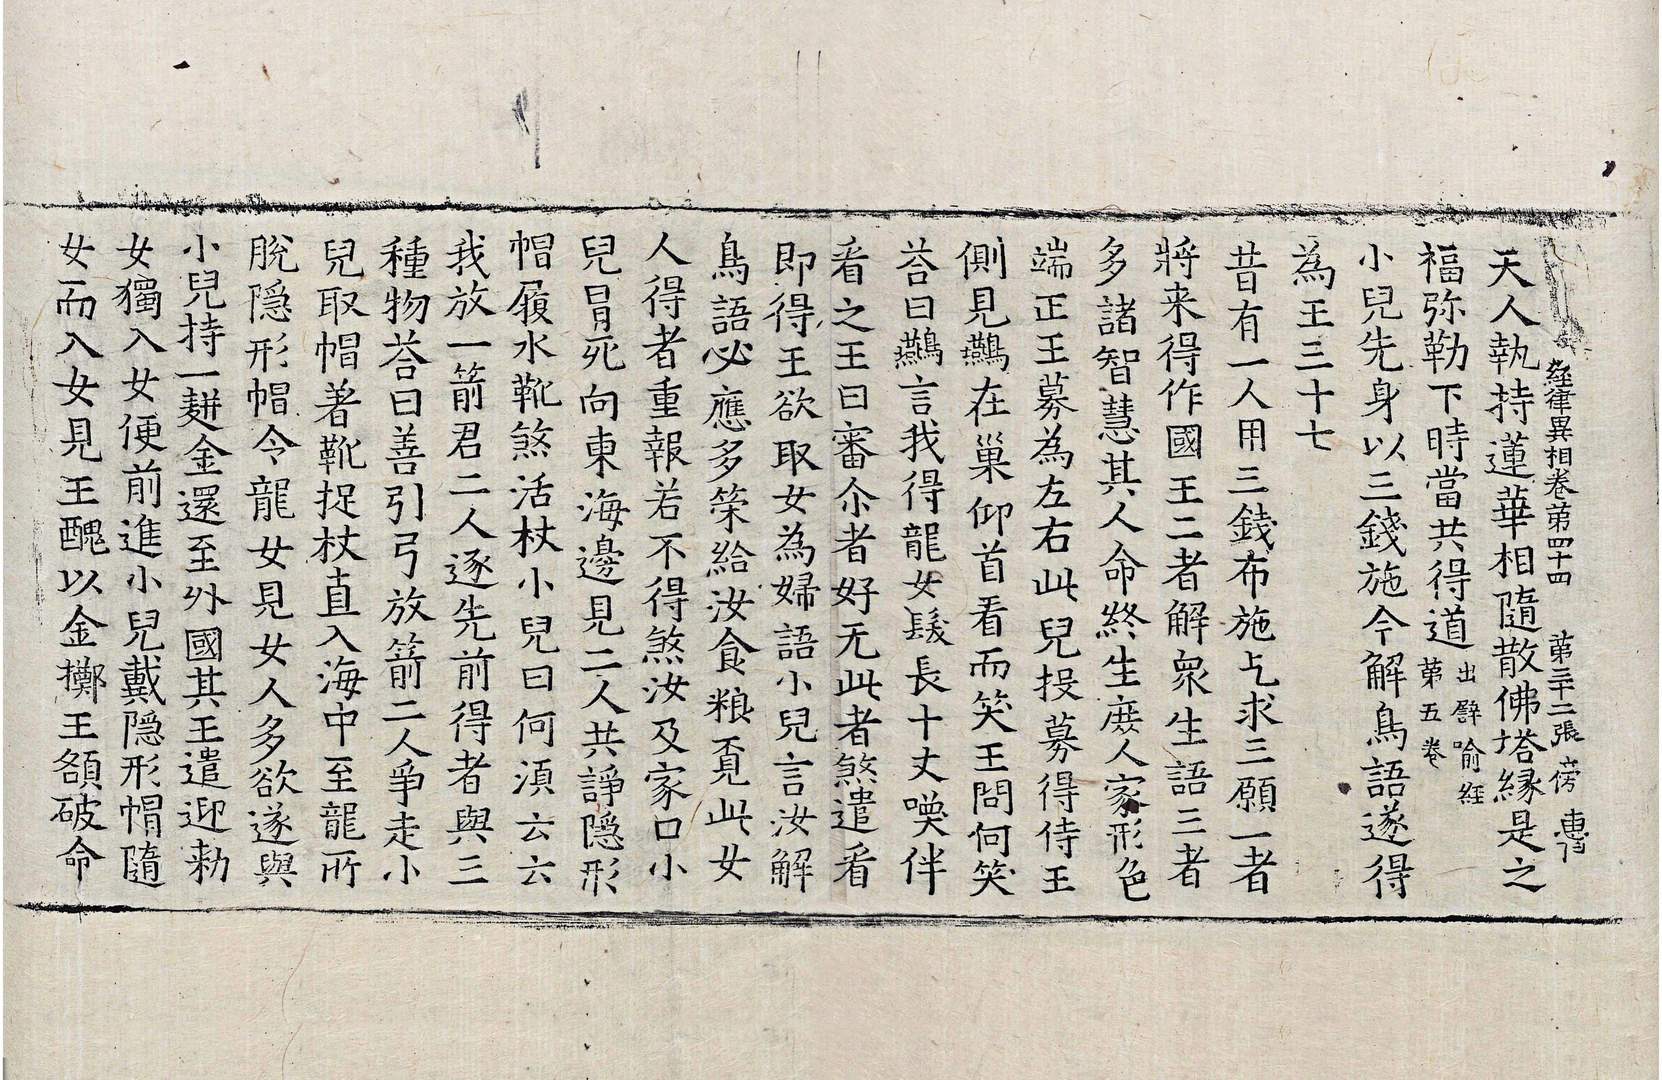 經律異相卷第四十四　第三十二張　傍
天人執持蓮華相隨散佛塔縁是之
福弥勒下時當共得道出譬喻经第五卷
小兒先身以三錢施今解鳥語遂得
為王三十七
昔有一人用三錢布施乞求三願一者
將来得作國王二者解衆生語三者
多諸智慧其人命終生庶人家形色
端正王募為左右此兒投募得侍王
側見鷰在巢仰首看而笑王問何笑
荅曰鷰言我得龍女髮長十丈喚伴
看之王曰審尒者好无此者煞遣看
即得王欲取女為婦語小兒言汝解
鳥語必應多筞給汝食粮覔此女
人得者重報若不得煞汝及家口小
兒冐死向東海邊見二人共諍隱形
帽履水靴煞活杖小兒曰何湏云云
我放一箭君二人逐先前得者與三
種物荅曰善引弓放箭二人爭走小
兒取帽著靴捉杖直入海中至龍所
脫隱形帽令龍女見女人多欲遂與
小兒持一䴵金還至外國其王遣迎勑
女獨入女便前進小兒戴隱形帽隨
女而入女見王醜以金擲王額破命